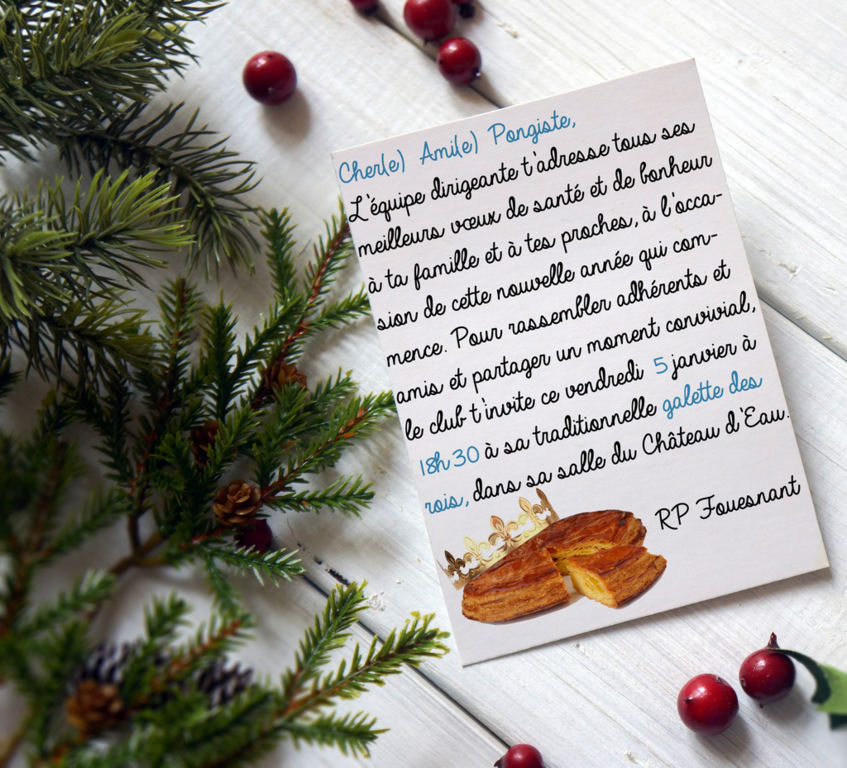 Cher(e) Ami(e) Pongiste,
L'équipe dirigeante t'adresse tous ses
meilleurs vœux de santé et de bonheur
à ta famille et à tes proches, à l'occa-
sion de cette nouvelle année qui com-
mence. Pour rassembler adhérents et
amis et partager un moment convivial,
le club t'invite ce vendredi 5 janvier à
18h30 à sa traditionnelle galette des
rois, dans sa salle du Château d'Eau.
RP Fouesnant